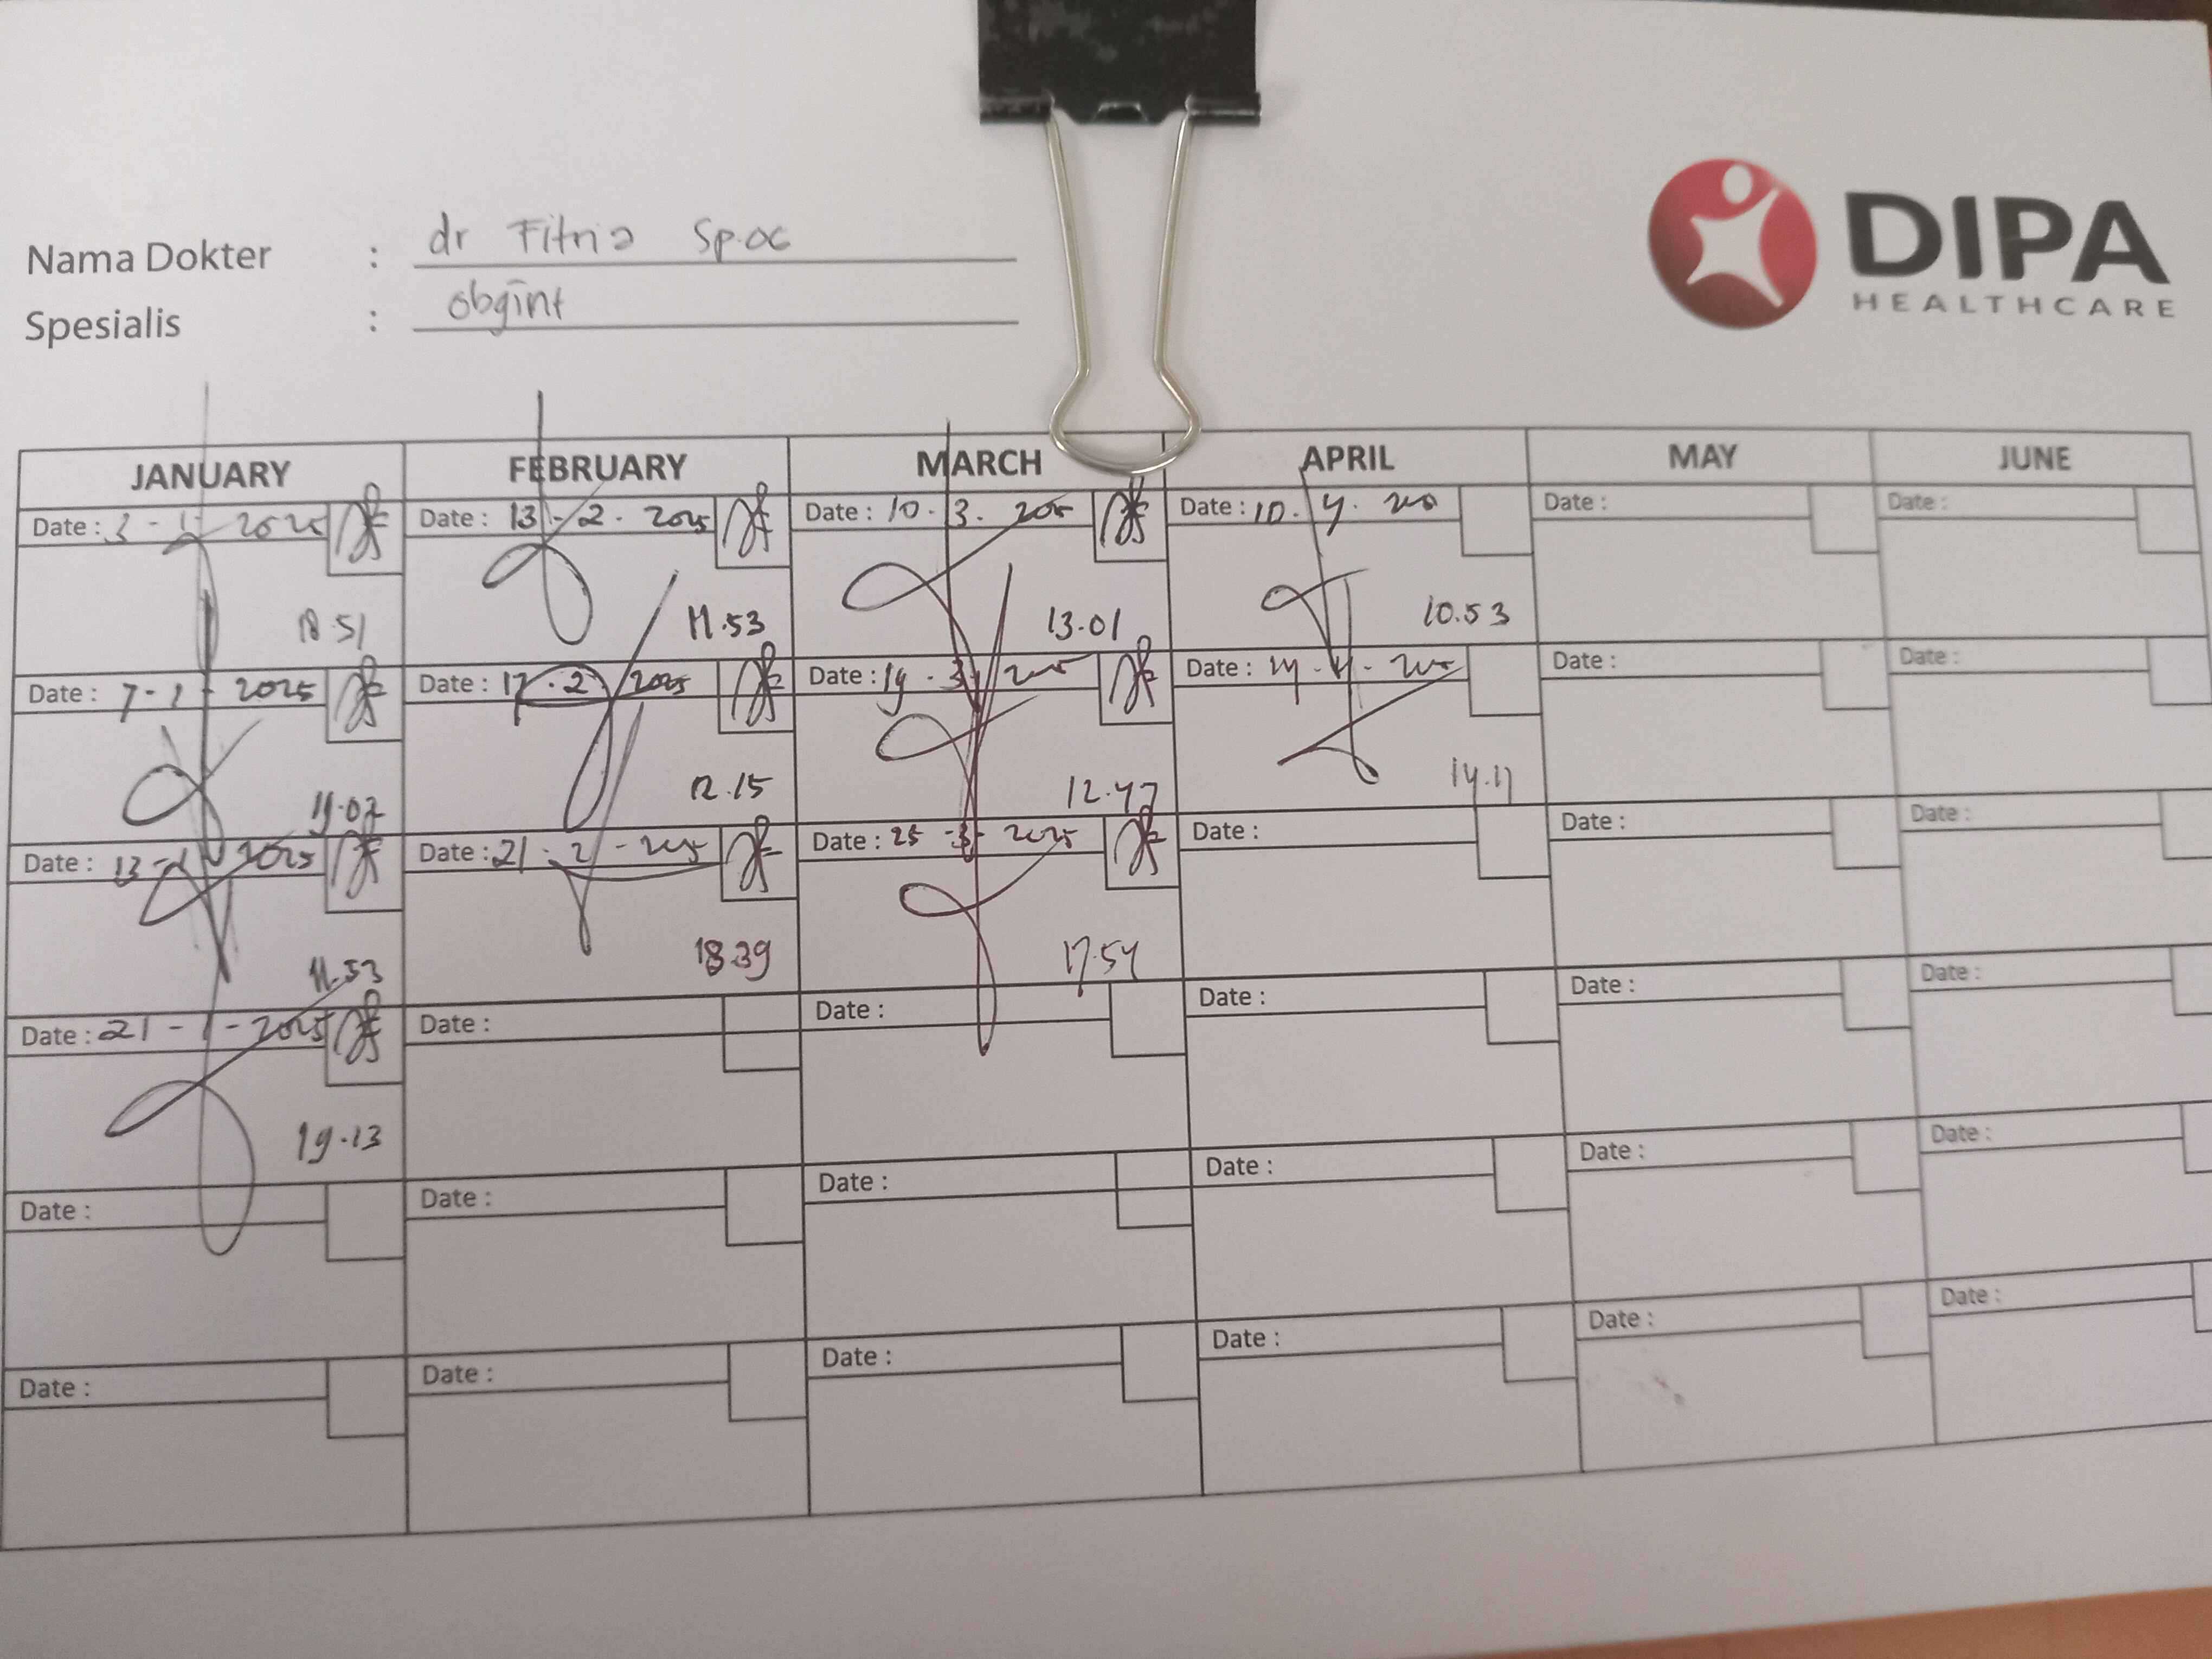 DIPA
HEALTHCARE
Nama Dokter : dr Fitria Sp.OG
Spesialis : obgint
JANUARY FEBRUARY MARCH APRIL MAY JUNE
Date : 3 - 1 - 2025 Date : 13 - 2 . 2025 Date : 10 . 3 . Date : 10 . 4 . Date : Date :
18.51 11.53 13.01 10.53
Date : 7 - 1 - 2025 Date : 17 . 2 . 2025 Date : 19 . 3 Date : 14 - 4 - Date : Date :
19.07 12.15 12.47 14.11
Date : 13 - 1 - 2025 Date : 21 - 2 - Date : 25 - 3 - 2025 Date : Date : Date :
11.53 18.39 17.54
Date : 21 - 1 - 2025 Date : Date : Date : Date : Date :
19.13
Date : Date : Date : Date : Date : Date :
Date : Date : Date : Date : Date : Date :